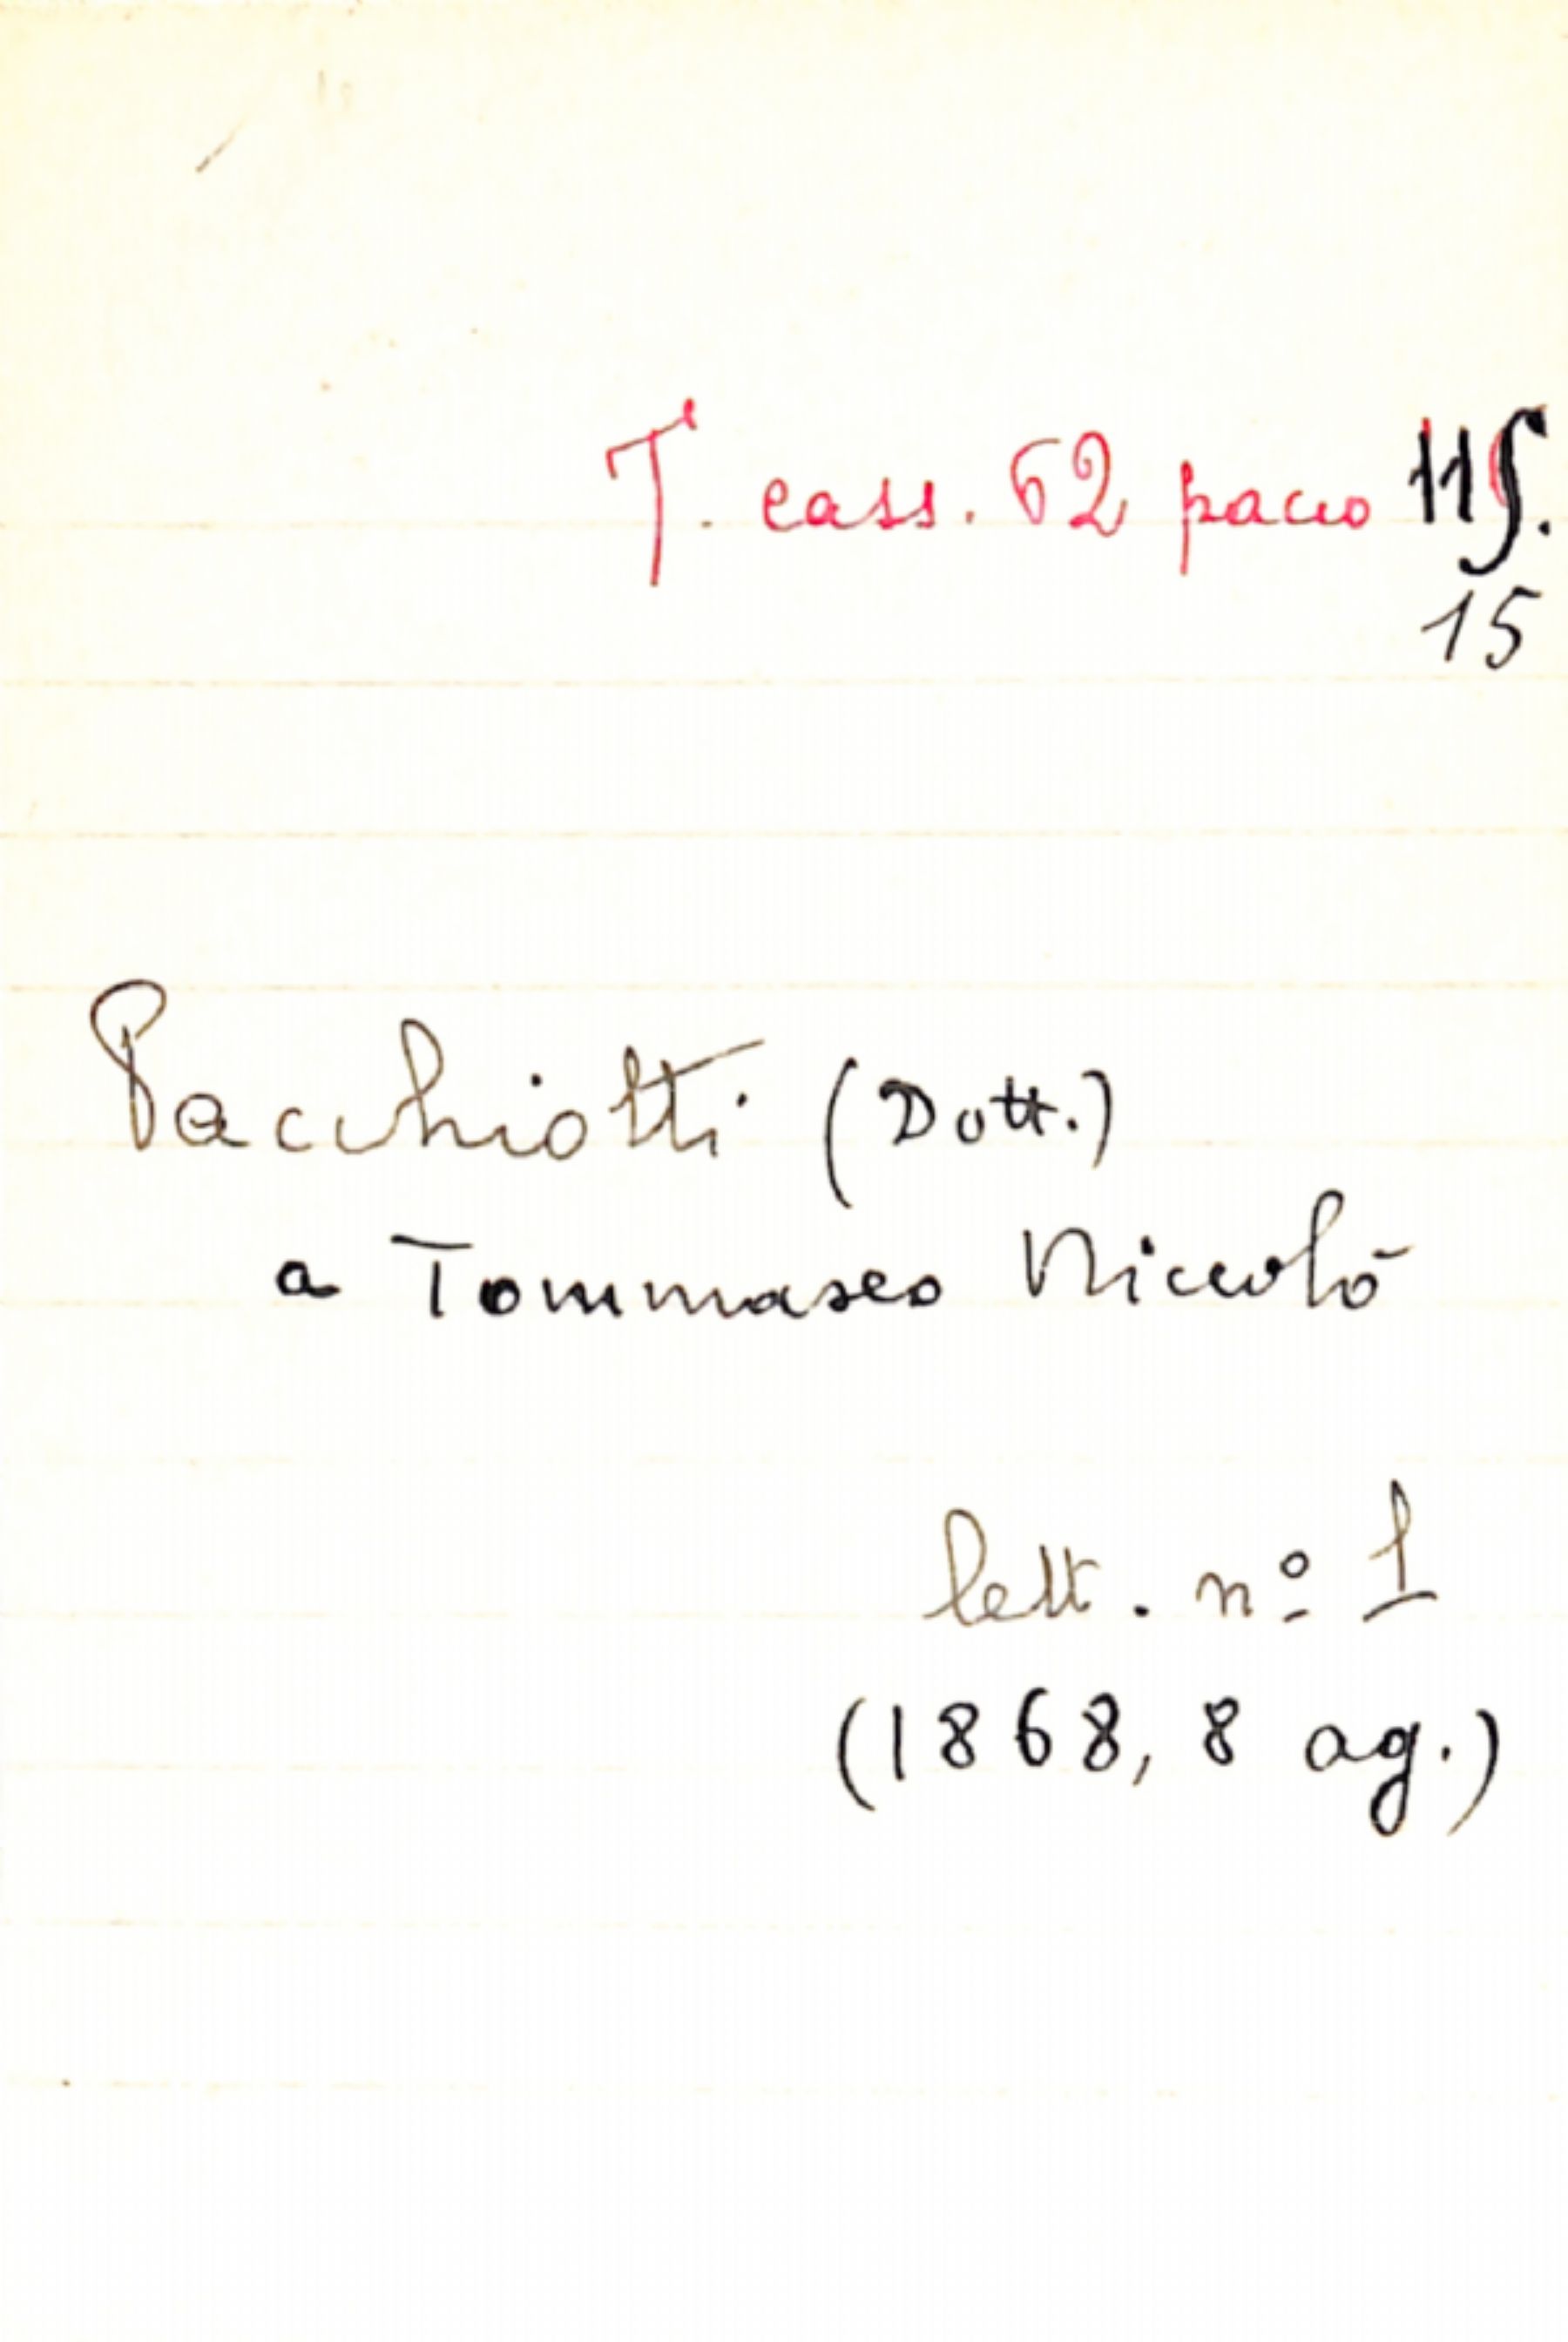 T. cass. 62 pacco 115.
15
Pacchiotti (Dott.)
a Tommaseo Niccolò
lett. nº 1
(1868, 8 ag.)